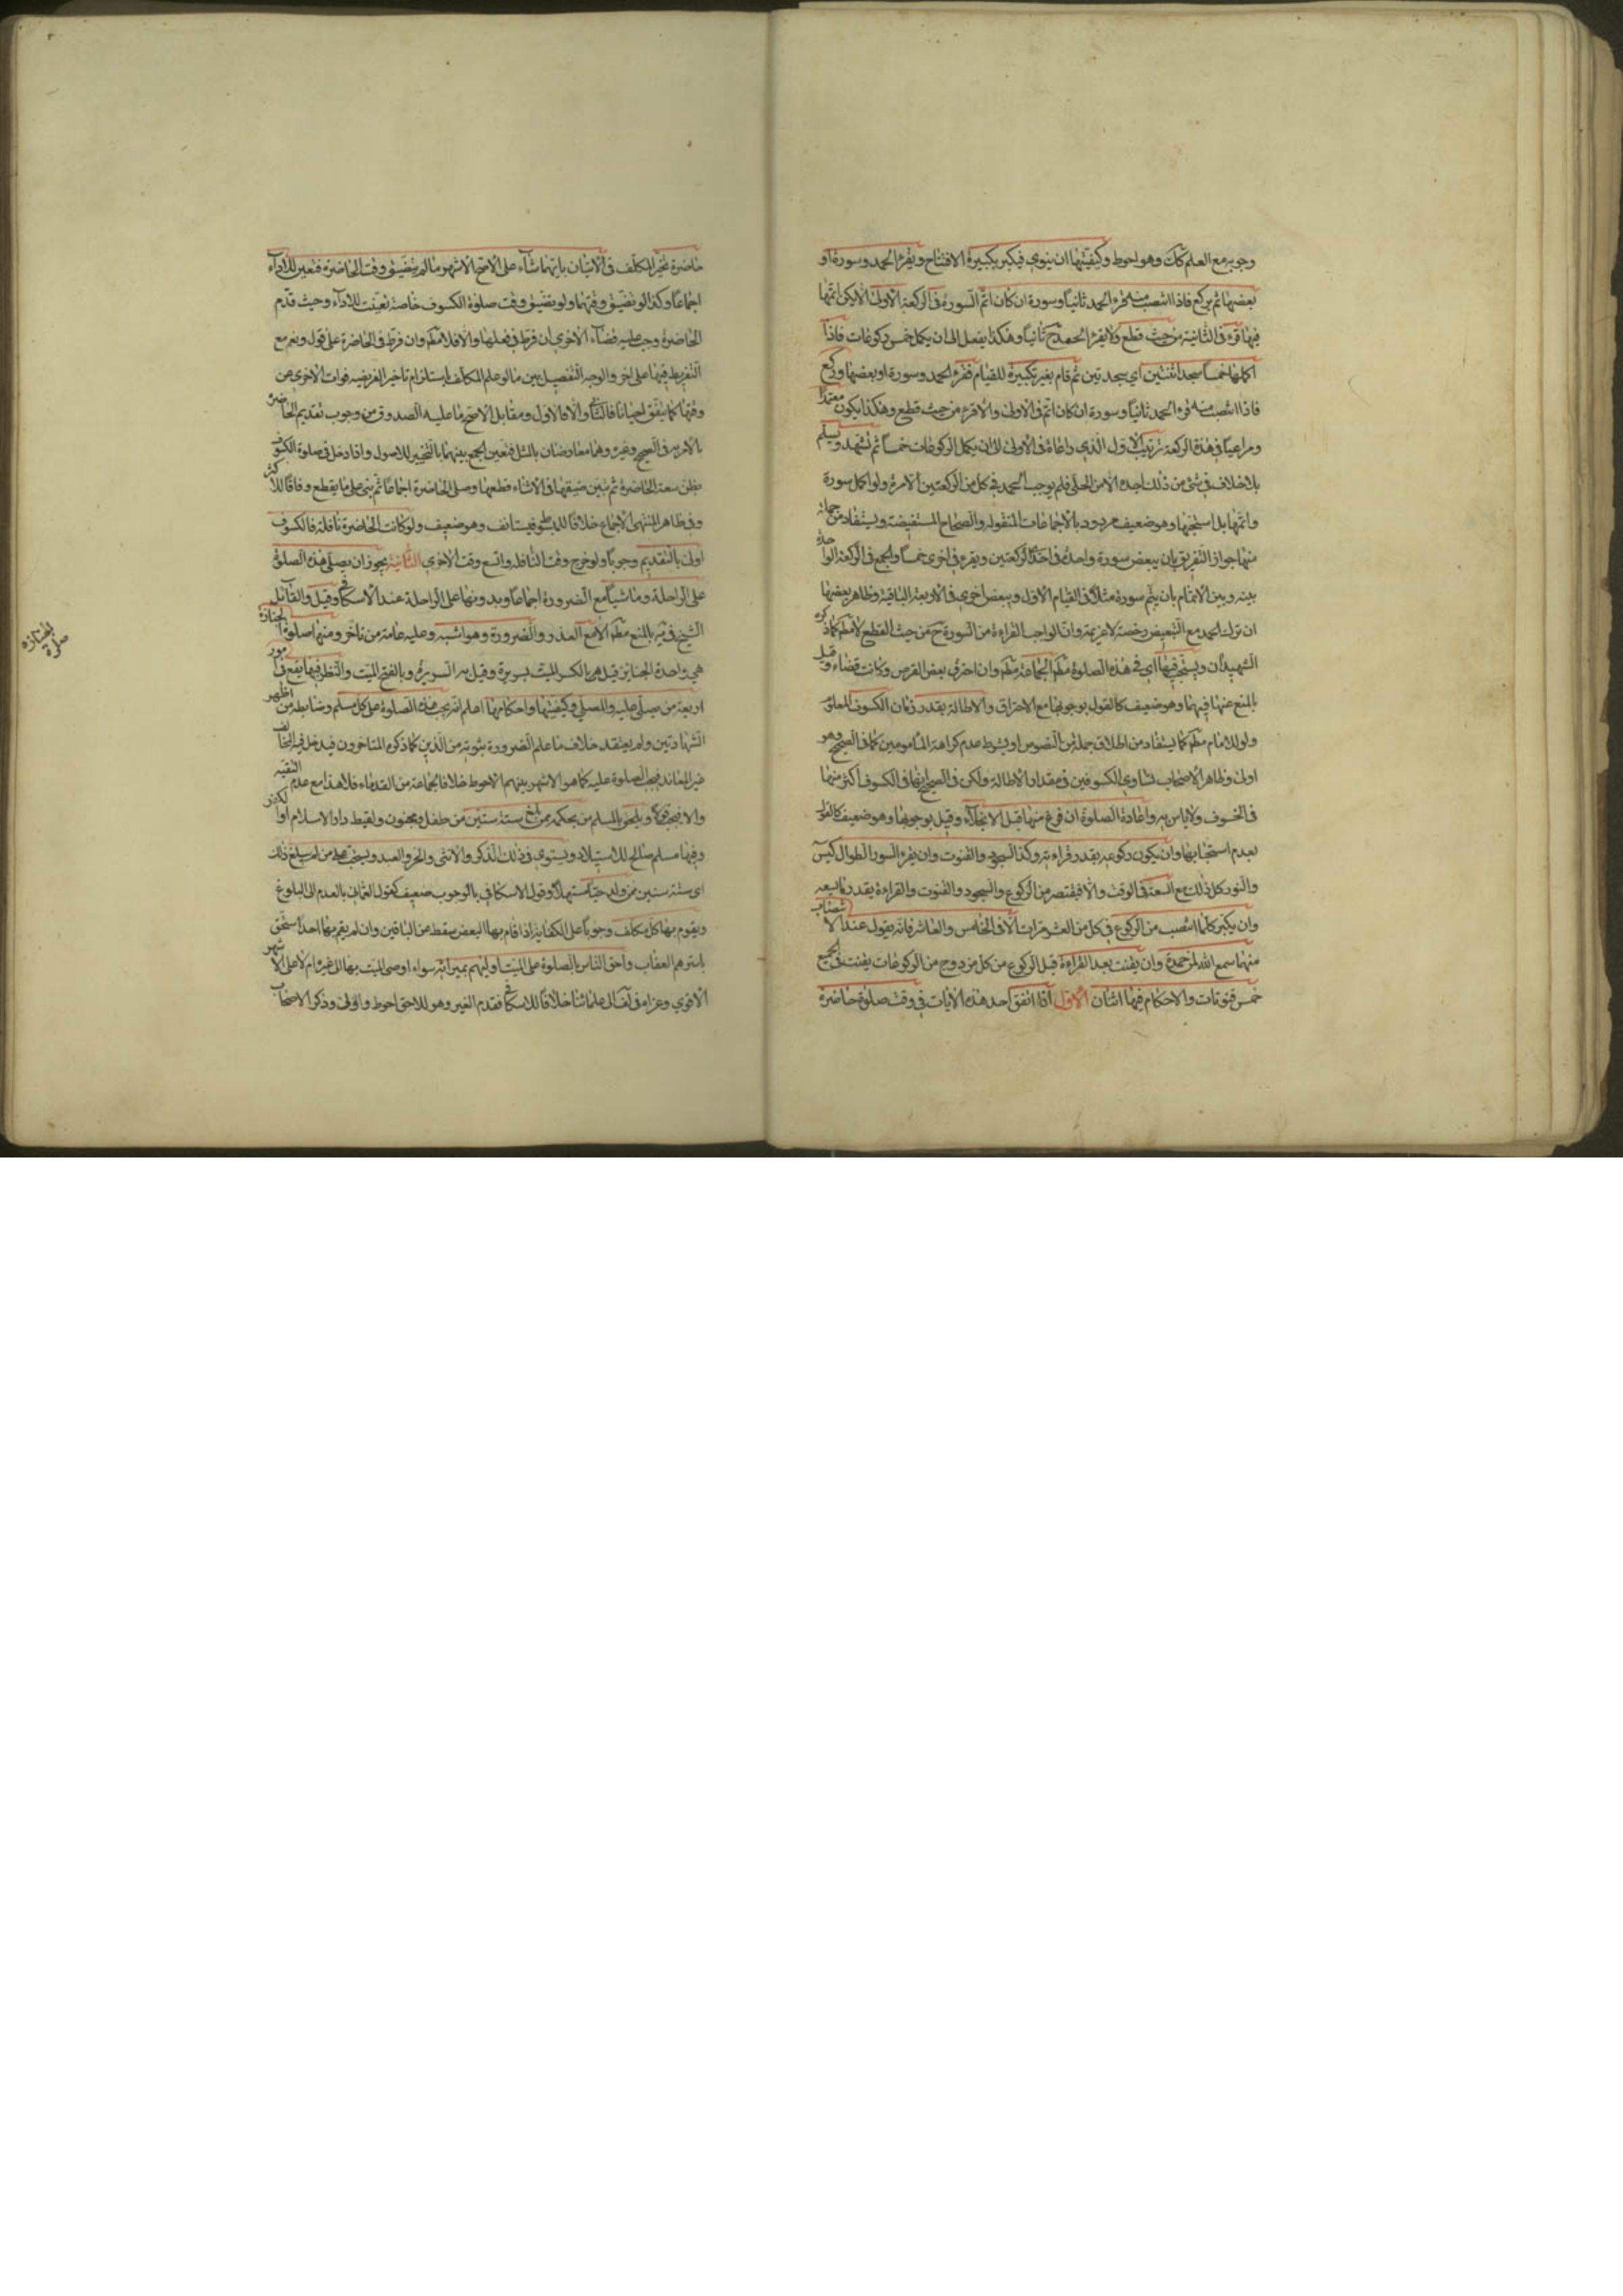 وجوبه مع العلم كك وهو احوط وكيفيتها ان ينوي فيكبر بكبيرة الافتتاح ويقرء الحمد وسورة او
بعضها ثم يركع فاذا انتصب منه قرء الحمد ثانياً وسورة ان كان اتم السورة في الركعة الاولى والا يكن اتمها
فيها قرء في الثانية من حيث قطع ولا يقرء الحمد ح ثانياً وهكذا يفعل الى ان يكمل خمس ركوعات فاذا
اكملها خمساً سجد اثنتين اي سجدتين ثم قام بغير تكبيرة للقيام فقرء الحمد وسورة او بعضها وركع
فاذا انتصب منه قرء الحمد ثانياً وسورة ان كان اتم في الاولى والا قرء من حيث قطع وهكذا يكون معتمداً
ومراعياً في هذه الركعة ترتيب الاول الذي راعاه في الاولى الى ان يكمل الركوعات خمساً ثم تشهد ويسلم
بلا خلاف في شئ من ذلك اجده الا من الحلي فلم يوجب الحمد في كل من الركعتين الا مرة ولو اكمل سورة
واتمها بل استحبها وهو ضعيف مردود بالاجماعات المنقولة والصحاح المستفيضة ويستفاد من جملة
منها جواز التفريق بان يبعض سورة واحدة في احدى الركعتين ويقرء في اخرى خمساً والجمع في الركعة الواحدة
بينه وبين الاتمام بان يتم سورة مثلاً في القيام الاول ويبعض اخرى في الاربعة الباقية وظاهر بعضها
ان ترك الحمد مع التبعيض رخصة لا عزيمة وان الواجب القراءة من السورة ح من حيث القطع لا مطم كما ذكره
الشهيدان ويستحب فيها اي في هذه الصلوة مطم الجماعة مطم وان احترق بعض القرص وكانت قضاء وقيل
بالمنع عنها فيهما وهو ضعيف كالقول بوجوبها مع الاحتراق والاطالة بقدر زمان الكسوف المعلوم
ولو للامام مطم كما يستفاد من اطلاق جملة من النصوص او بشرط عدم كراهة المأمومين كما في الصحيح وهو
اولى وظاهر الاصحاب تساوي الكسوفين في مقدار الاطالة ولكن في الصحيح انها في الكسوف اكثر منها
في الخسوف ولا باس به واعادة الصلوة ان فرغ منها قبل الانجلاء وقيل بوجوبها وهو ضعيف كالقول
بعدم استحبابها وان يكون ركوعه بقدر قراءته وكذا السجود والقنوت وان يقرء السور الطوال كيس
والنور كل ذلك مع السعة في الوقت والا فيقتصر من الركوع والسجود والقنوت والقراءة بقدر ما يسعه
وان يكبر كلما انتصب من الركوع في كل من العشر مرات الا في الخامس والعاشر فانه يقول عند الانتصاب
منهما سمع الله لمن حمده وان يقنت بعد القراءة قبل الركوع من كل مزدوج من الركوعات يقنت في الجميع
خمس قنوتات والاحكام فيها اثنان الاول اذا اتفق احد هذه الايات في وقت صلوة حاضرة
حاضرة تخير المكلف في الاتيان بايهما شاء على الاصح الاشهر ما لم يتضيق وقت الحاضرة فتعين للاداء
اجماعاً وكذا لو تضيق وقتهما ولو تضيق وقت صلوة الكسوف خاصة تعينت للاداء وحيث قدم
الحاضرة وجب عليه قضاء الاخرى ان فرط في فعلها والا فلا مطم وان فرط في الحاضرة على قول ونعم مع
التفريط فيها على اخر والوجه التفصيل بين ما لو علم المكلف باستلزام تاخير الفريضة فوات الاخرى عن
وقتها كما يتفق احياناً فالثاني والا فالاول ومقابل الاصح ما عليه الصدوق من وجوب تقديم الحاضرة
بالامر به في الصحيح وغيره وهما معارضان بالمثل فتعين الجمع بينهما بالتخيير للاصول واذا دخل في صلوة الكسوف
بظن سعة الحاضرة ثم تبين ضيقها في الاثناء قطعها وصلى الحاضرة اجماعاً ثم بنى على ما يقطع وفاقاً للاكثر
وفي ظاهر المنتهى الاجماع خلافاً للمبسوط فيستانف وهو ضعيف ولو كانت الحاضرة نافلة فالكسوف
اولى بالتقديم وجوباً ولو خرج وقت النافلة واتسع وقت الاخرى الثانية يجوز ان يصلى هذه الصلوة
على الراحلة وماشياً مع الضرورة اجماعاً وبدونها على الراحلة عند الاسكافي وقيل والقائل
الشيخ في يه بالمنع مطم الا مع العذر والضرورة وهو اشبه وعليه عامة من تاخر ومنها صلوة الجنازة
هي واحدة الجنايز قيل هي بالكسر الميت بسريره وقيل بل السرير وبالفتح الميت والنظر فيها يقع في امور
اربعة من يصلى عليه والمصلي وكيفيتها واحكامها اعلم انه يجب هذه الصلوة على كل مسلم وضابطه من اظهر
الشهادتين ولم يعتقد خلاف ما علم الضرورة ثبوته من الدين كما ذكره المتاخرون فيدخل فيه المخالف
غير المعاند فيجب الصلوة عليه كما هو الاشهر بينهم الاحوط خلافاً لجماعة من القدماء فلا هذا مع عدم التقية
والا فيجب قطعاً ويلحق بالمسلم من بحكمه ممن بلغ ستة سنين من طفل ومجنون ولقيط دار الاسلام او الكفر
وفيها مسلم صالح للاستيلاد ويستوي في ذلك الذكر والانثى والحر والعبد ويستحب على من لم يبلغ ذلك
اي ستة سنين ممن ولد حياً مستهلاً وقول الاسكافي بالوجوب ضعيف كقول العماني بالعدم الى البلوغ
ويقوم بها كل مكلف وجوباً على الكفاية اذا قام بها البعض سقط عن الباقين وان لم يقم بها احد استحق
باسرهم العقاب واحق الناس بالصلوة على الميت اوليهم بميراثه سواء اوصى الميت بها الى غيره ام لا على الاشهر
الاقوى وعزاه في لف الى علمائنا خلافاً للاسكافي فقدم الغير وهو للاحق احوط واولى وذكر الاصحاب
صلوة الجنازه